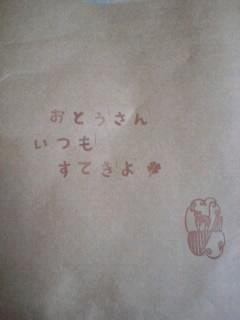 おとうさん
いつも
すてきよ